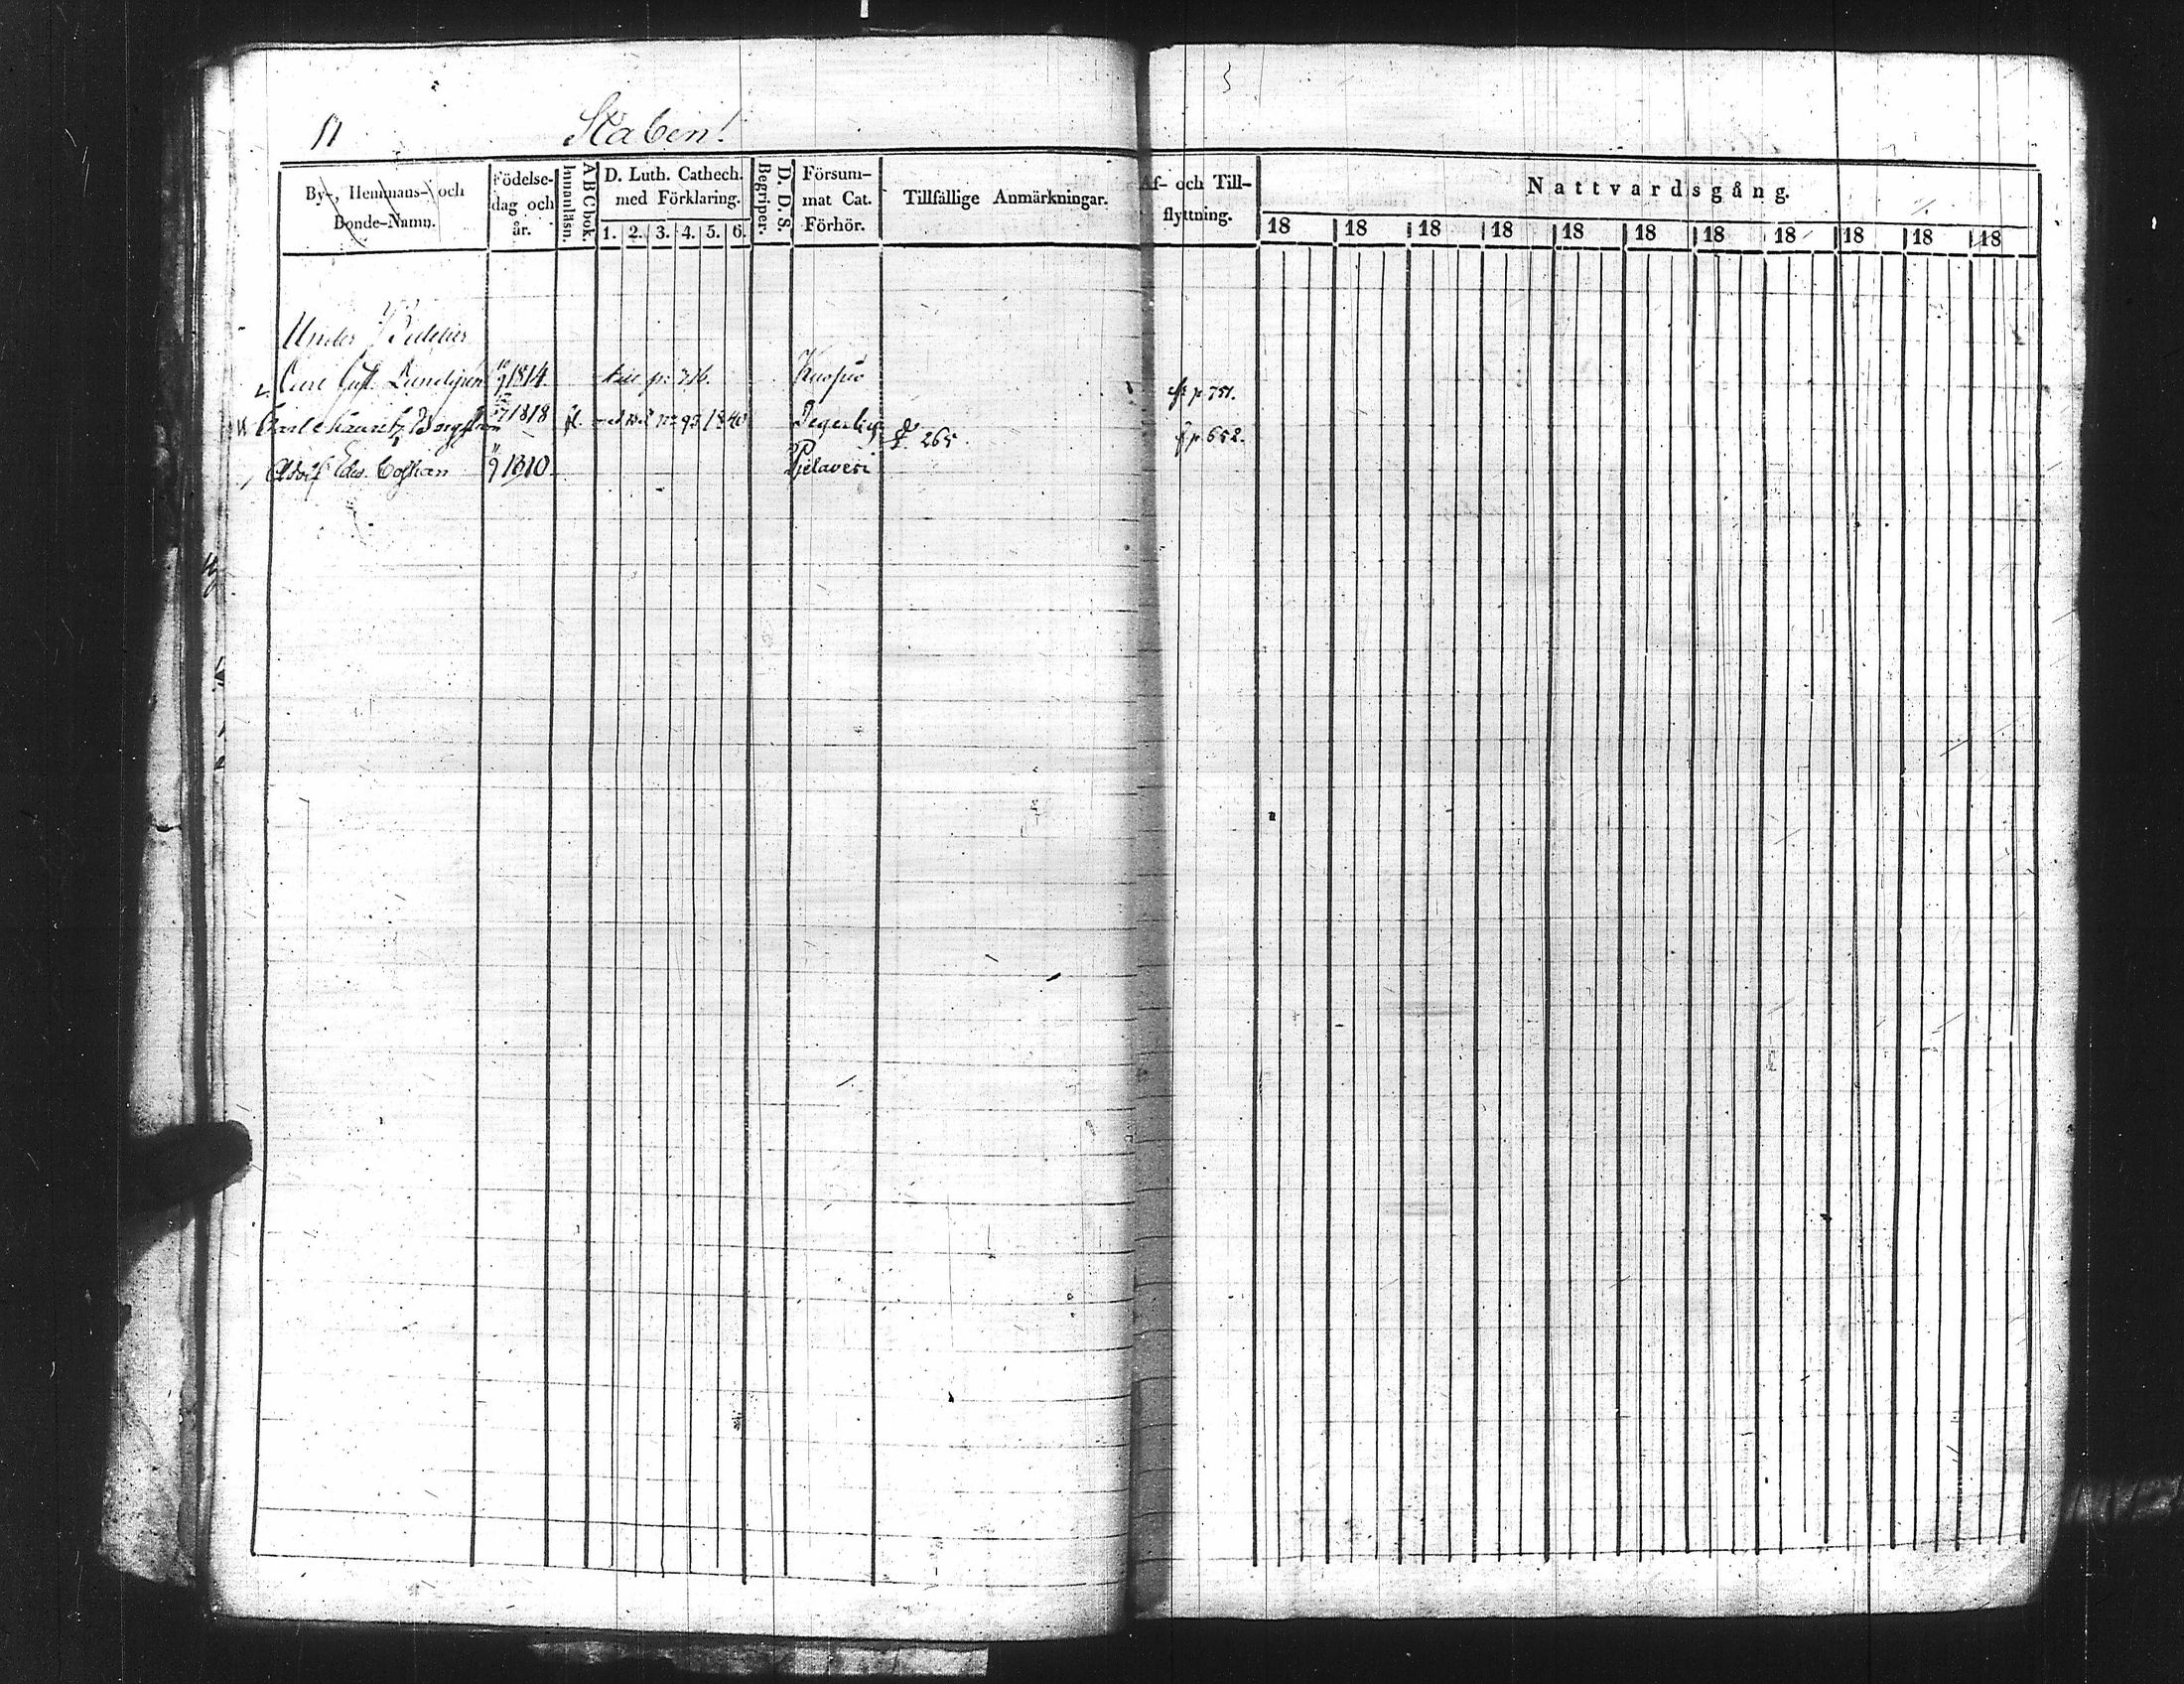 Staben.
By-, Hemmans- och Bonde-Namn.
Födelse-dag och år.
ABC bok. Innanläsn.
D. Luth. Cathech. med Förklaring.
1. 2. 3. 4. 5. 6.
D. D. S. Begriper.
Försum-mat Cat. Förhör.
Tillfällige Anmärkningar.
Af- och Till-flyttning.
Nattvardsgång.
18 18 18 18 18 18 18 18 18 18 18
Under
Carl Gust. Lundgren 1814 p. 716. Kuopio p 751.
Carl 1818 fl. No 95 1840 Degerby 265 p. 652.
Adolf Edv. 9 1810 Pielavesi